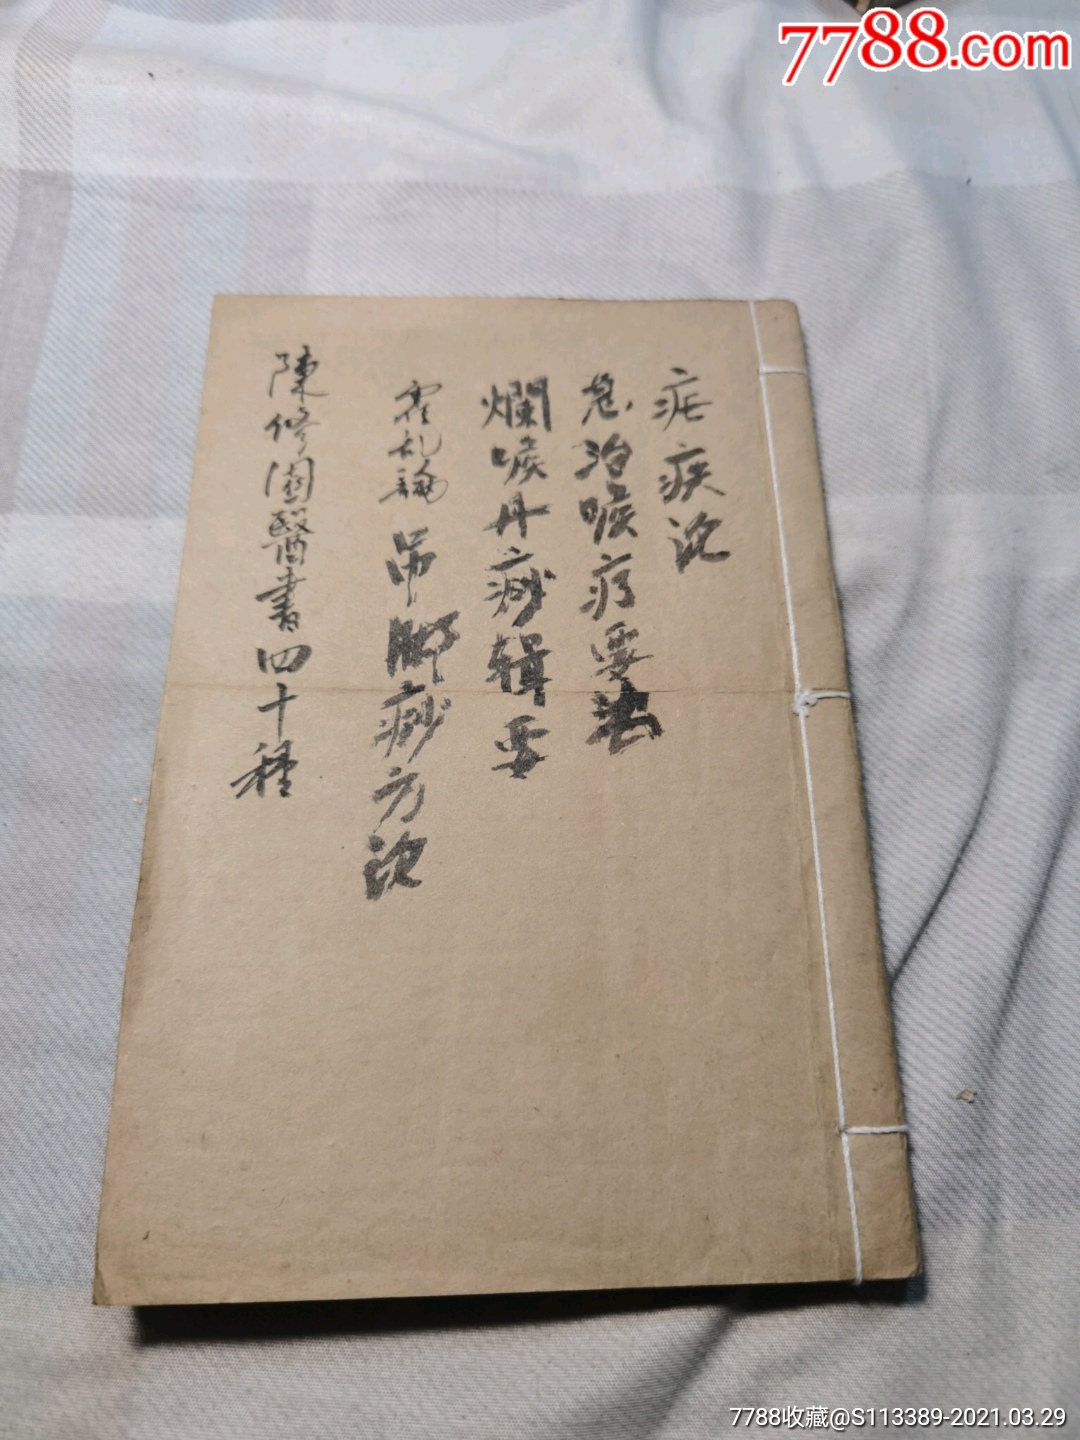 7788.com
疟疾论
急治喉疗要法
爛喉丹痧輯要
霍乱論 吊脚痧方论
陳修園醫書四十種
7788收藏@S113389-2021.03.29